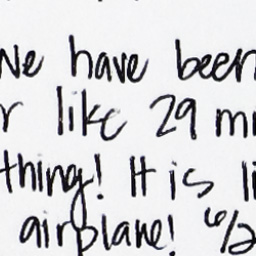 We have been
r like 29 m
thing! It is li
airplane! 6/2